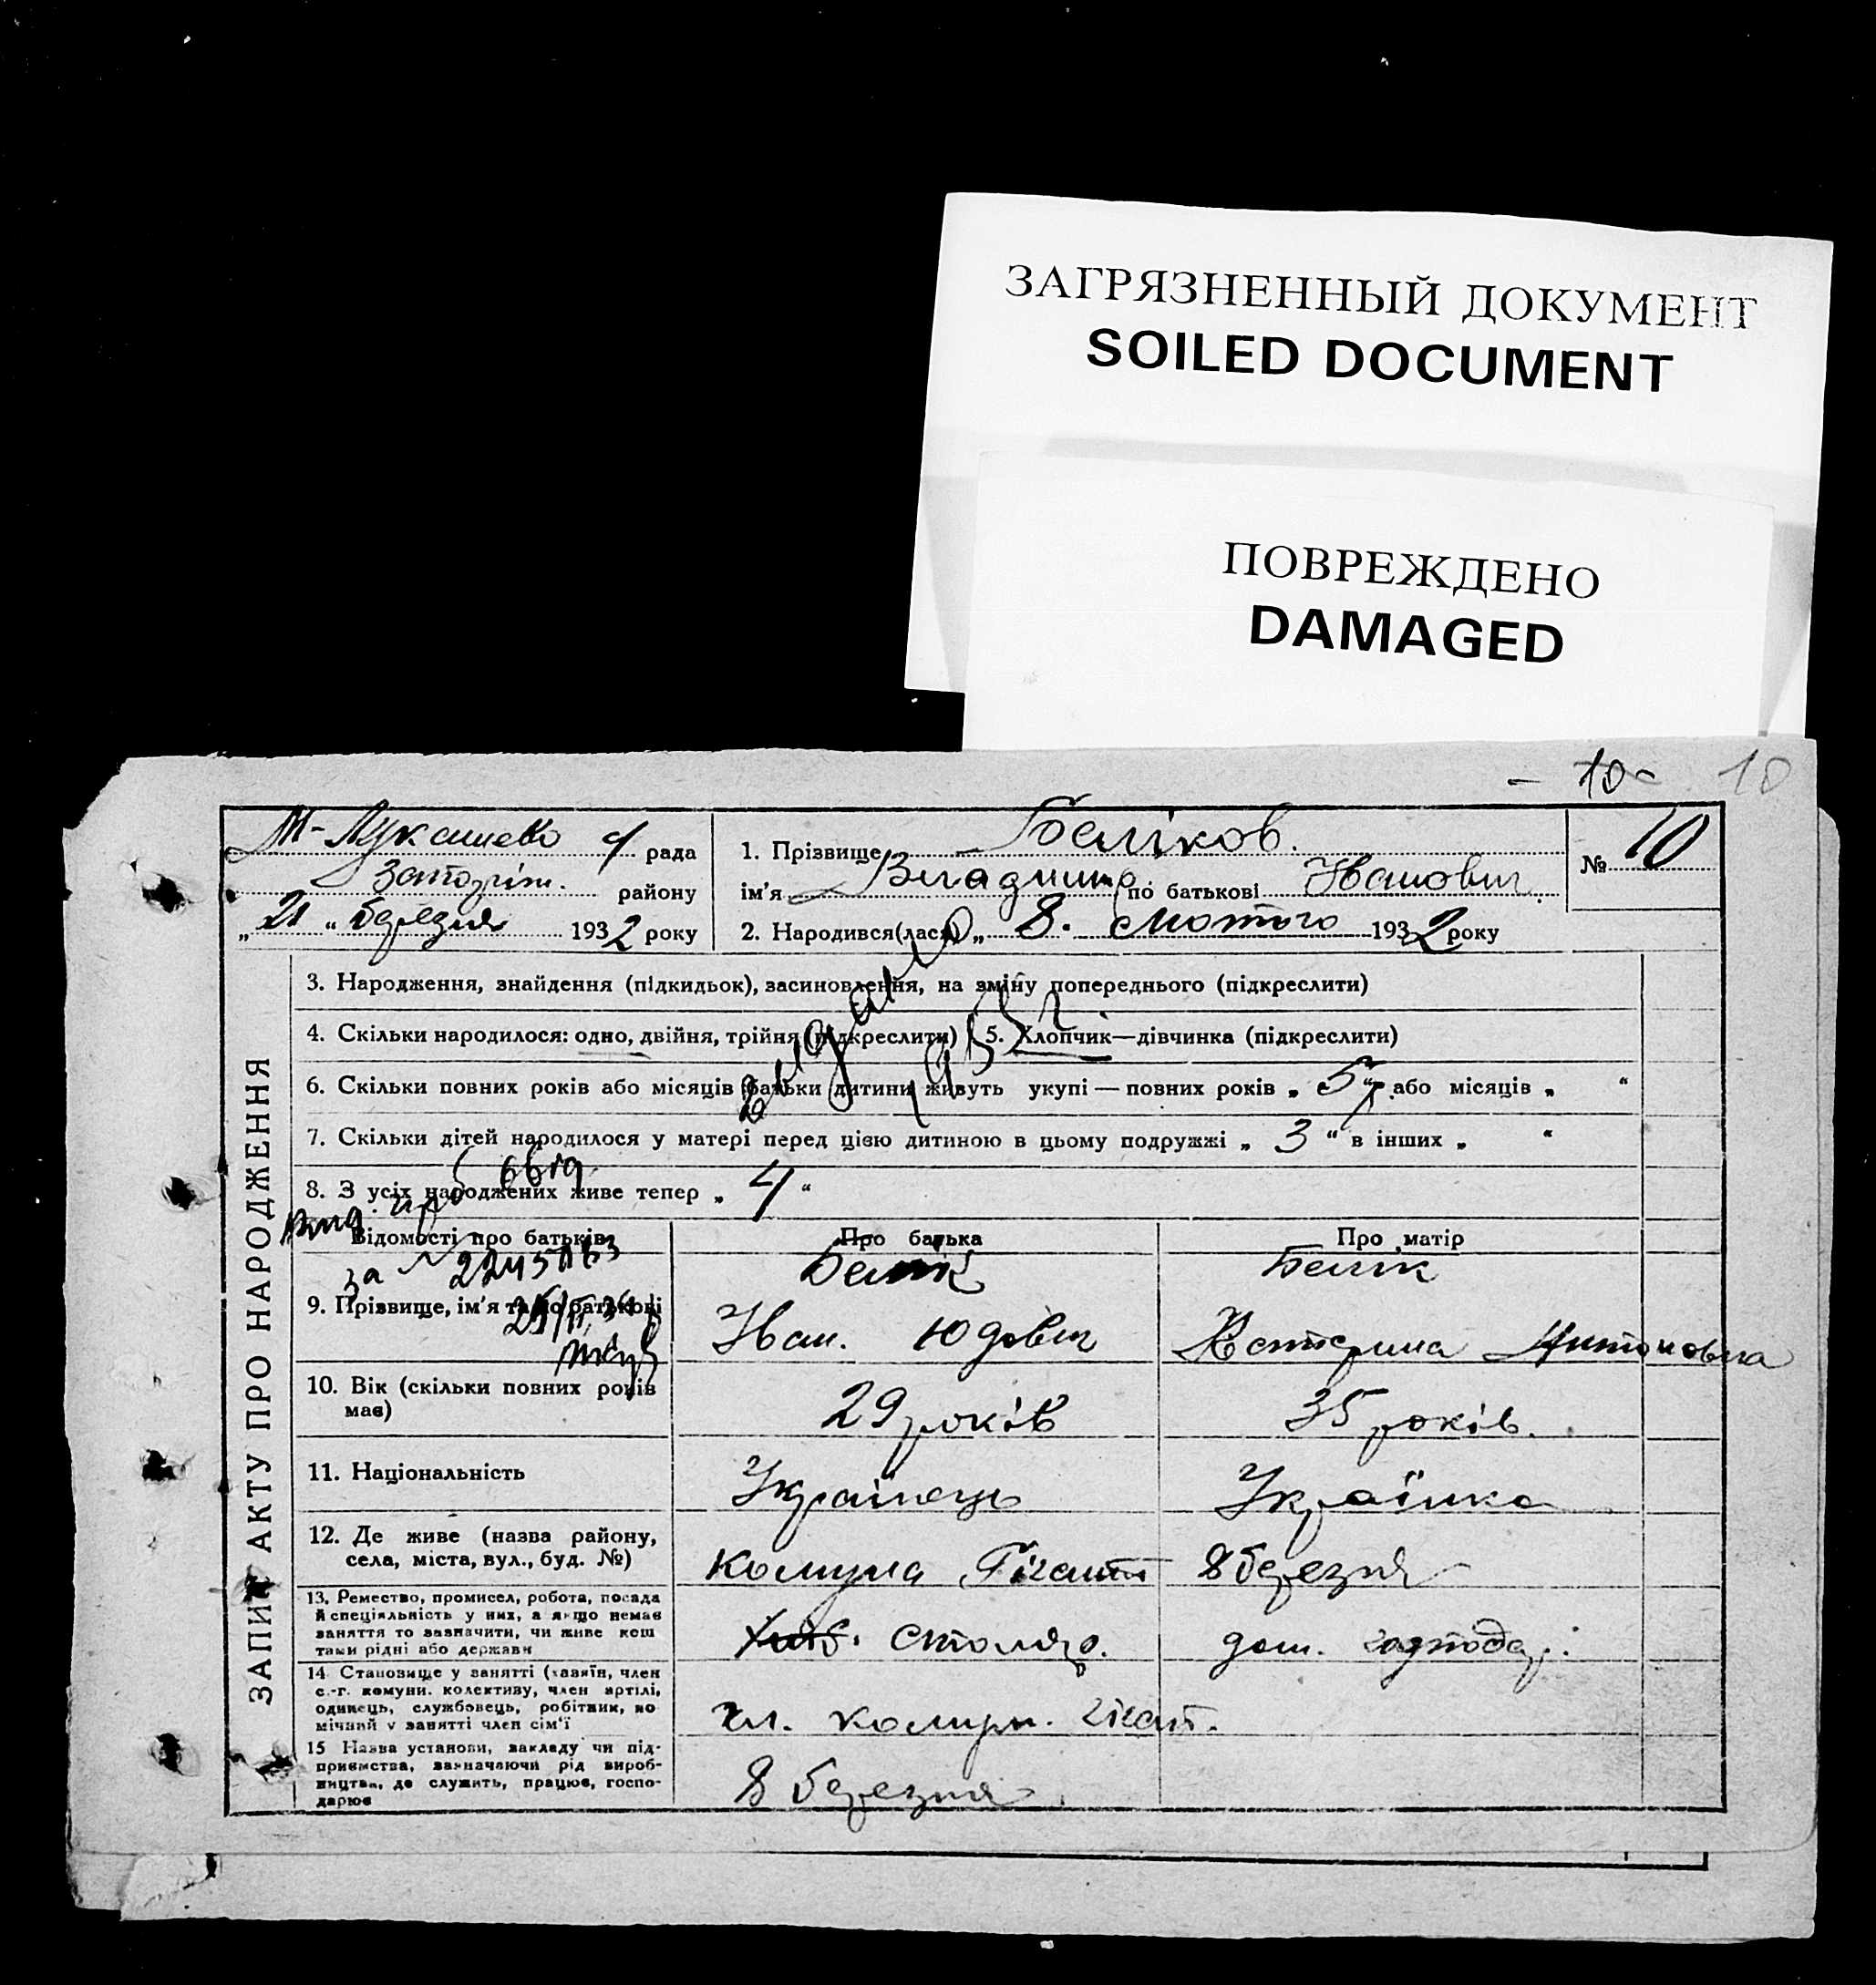 ЗАГРЯЗНЕННЫЙ ДОКУМЕНТ
SOILED DOCUMENT
ПОВРЕЖДЕНО
DAMAGED
- 10 - 10
М-Лукашево рада
району
„ 21 “ березня 1932 року
1. Прізвище Беліков.
ім'я Владимир по батькові Иванович
2. Народився(лася) „ 8. лютого 1932 року
№ 10
ЗАПИС АКТУ ПРО НАРОДЖЕННЯ
3. Народження, знайдення (підкидьок), засиновлення, на зміну попереднього (підкреслити)
4. Скільки народилося: одно, двійня, трійня (підкреслити) 5. Хлопчик—дівчинка (підкреслити)
6. Скільки повних років або місяців батьки дитини живуть укупі — повних років „ 5 р. або місяців „ “
7. Скільки дітей народилося у матері перед цією дитиною в цьому подружжі „ 3 “ в інших „ “
8. З усіх народжених живе тепер „ 4 “
видано
1932
Відомості про батьків
Про батька
Про матір
за
9. Прізвище, ім'я та по батькові
Белік
Иван. Юдович
Белік
Катерина Антоновна
10. Вік (скільки повних років має)
29 років
35 років.
11. Національність
Українець
Українка
12. Де живе (назва району, села, міста, вул., буд. №)
Комуна Гігант 8 березня
13. Ремество, промисел, робота, посада й спеціяльність у них, а якщо немає заняття то зазначити, чи живе кош тами рідні або держави
столяр.
дом. господар.
14 Становище у занятті (хазяїн, член с.-г. комуни. колективу, член артілі, одинець, службовець, робітник, по мічний у занятті член сім'ї
чл. комун. гігант.
15 Назва установи, закладу чи підприємства, зазначаючи рід виробництва, де служить, працює, господарює
8 березня